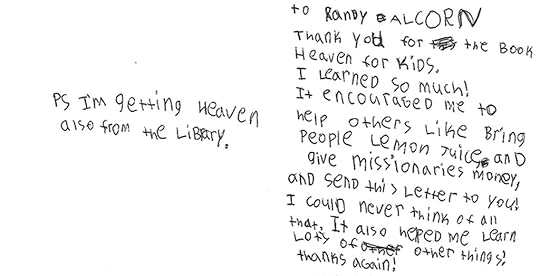 to RANDY ALCORN
Thank you for the Book
Heaven for Kids.
I Learned so much!
It encouraged me to
help others Like Bring
People Lemon Juice and
give missionaries money,
and send this Letter to you!
I could never think of all
that. It also heped me Learn
Lots of other things!
thanks again!
PS I'm getting Heaven
also from the Library.